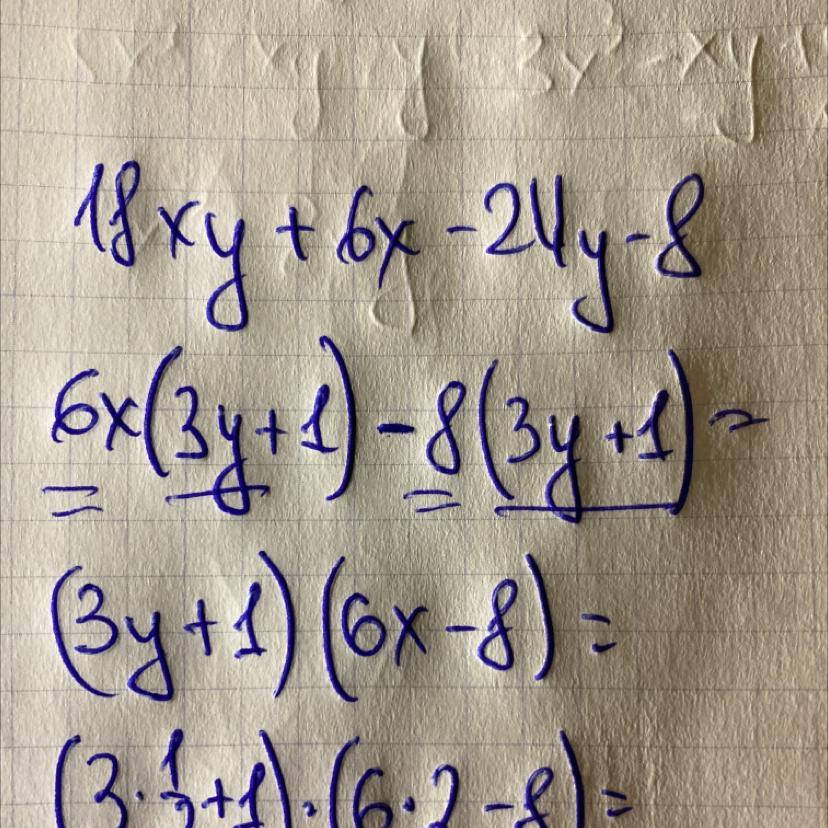 18xy + 6x - 24y - 8
6x(3y+1) - 8(3y+1) =
(3y+1)(6x-8) =
(3·1/3+1)·(6·2-8) =